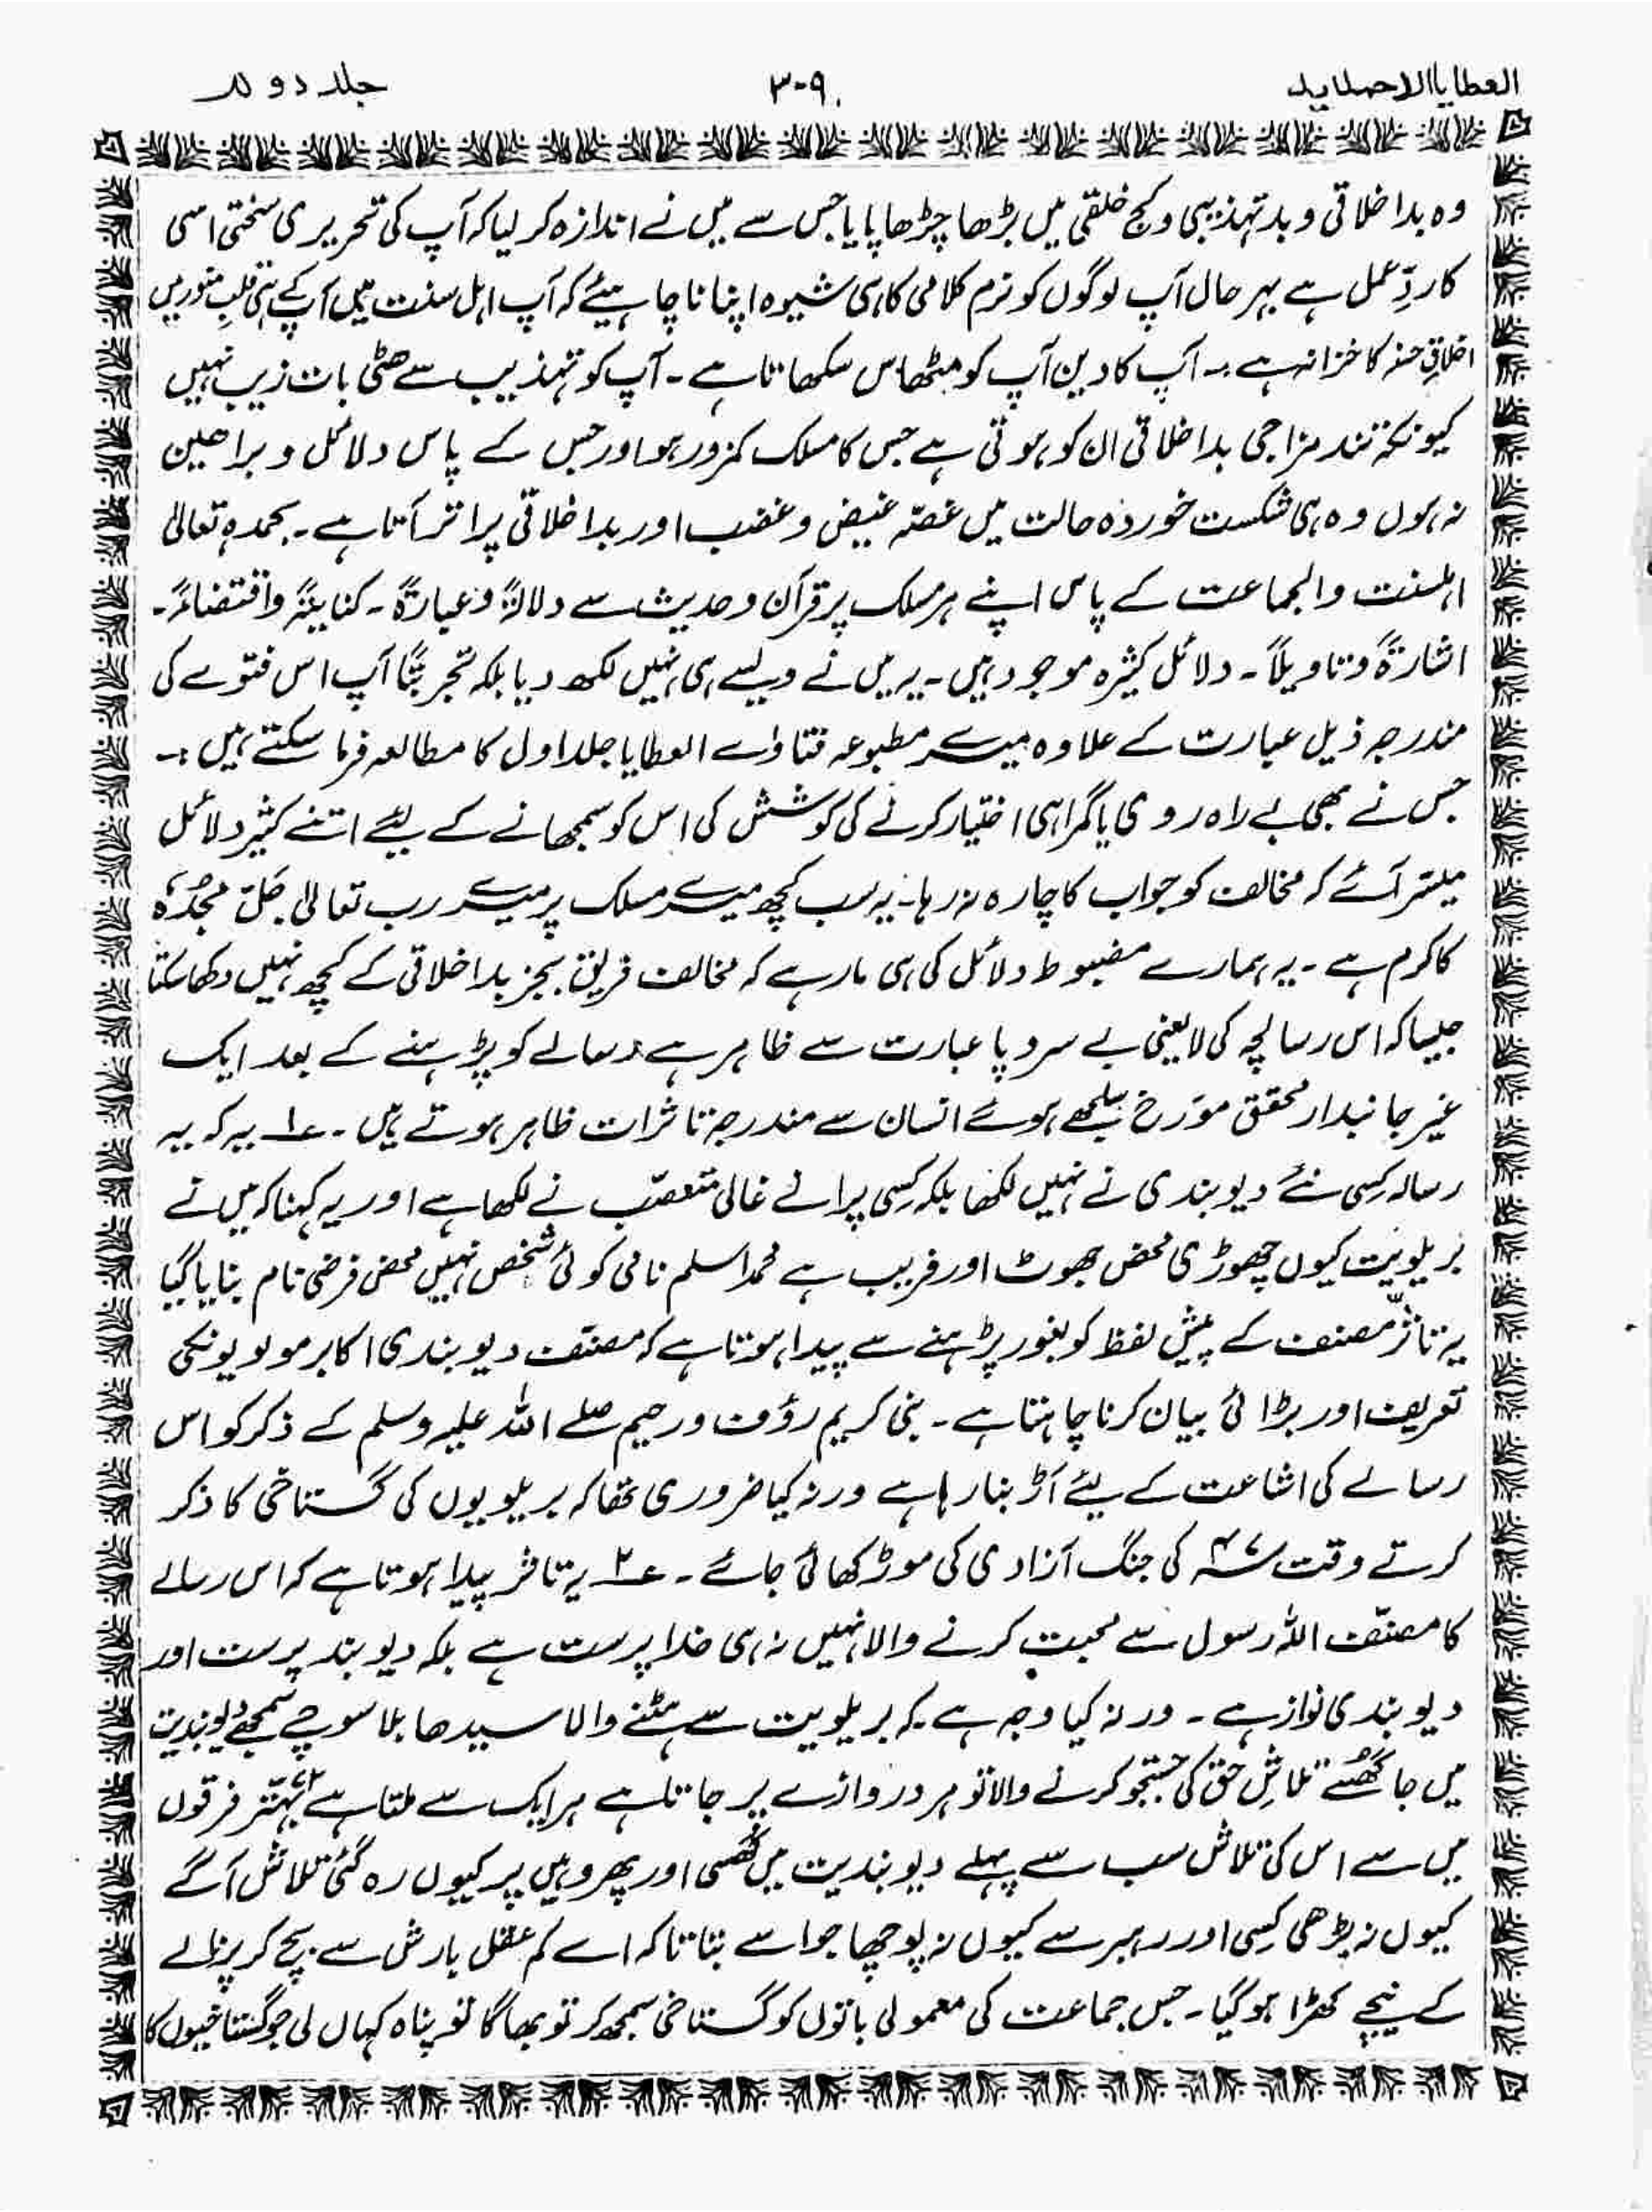 العطایا الاحمدیہ ۳۰۹ جلد دوم
وہ بداخلاقی و بدتہذیبی و کج خلقی میں بڑھا چڑھا پایا جس سے میں نے اندازہ کر لیا کہ آپ کی تحریری سختی اسی
کا ردِّ عمل ہے بہر حال آپ لوگوں کو نرم کلامی کا ہی شیوہ اپنانا چاہیئے کہ آپ اہل سنت ہیں آپ کے ہی قلبِ منور میں
اخلاقِ حسنہ کا خزانہ ہے ۔ آپ کا دین آپ کو مٹھاس سکھاتا ہے ۔ آپ کو تہذیب سے ھٹی بات زیب نہیں
کیونکہ تند مزاجی بداخلاقی ان کو ہوتی ہے جس کا مسلک کمزور ہو اور جس کے پاس دلائل و براھین
نہ ہوں وہ ہی شکست خوردہ حالت میں غصّہ غیض و غضب اور بداخلاقی پر اتر آتا ہے ۔ بحمدہٖ تعالیٰ
اہلسنت والجماعت کے پاس اپنے ہر مسلک پر قرآن و حدیث سے دلالۃً وعبارۃً ۔ کنایۃً واقتضاءً ۔
اشارۃً وتاویلاً ۔ دلائل کثیرہ موجود ہیں ۔ یہ میں نے ویسے ہی نہیں لکھ دیا بلکہ تجربتًا آپ اس فتوے کی
مندرجہ ذیل عبارت کے علاوہ میرے مطبوعہ فتاواے العطایا جلد اول کا مطالعہ فرما سکتے ہیں :۔
جس نے بھی بے راہ روی یا گمراہی اختیار کرنے کی کوشش کی اس کو سمجھانے کے لیئے اتنے کثیر دلائل
میسّر آئے کہ مخالف کو جواب کا چارہ نہ رہا ۔ یہ سب کچھ میرے مسلک پر میرے رب تعالیٰ جَلَّ مَجْدُہٗ
کا کرم ہے ۔ یہ ہمارے مضبوط دلائل کی ہی مار ہے کہ مخالف فریق بجز بداخلاقی کے کچھ نہیں دکھا سکتا
جیسا کہ اس رسالچہ کی لایعنی بے سروپا عبارت سے ظاہر ہے رسالے کو پڑہنے کے بعد ایک
غیر جانبدار محقق مؤرخ سلجھے ہوئے انسان سے مندرجہ تاثرات ظاہر ہوتے ہیں ۔ ۱؎ یہ کہ یہ
رسالہ کِسی نئے دیوبندی نے نہیں لکھا بلکہ کِسی پرانے غالی متعصّب نے لکھا ہے اور یہ کہنا کہ میں نے
بریلویت کیوں چھوڑی محض جھوٹ اور فریب ہے محمد اسلم نامی کوئی شخص نہیں محض فرضی نام بنایا گیا
یہ تاثّر مصنف کے پیش لفظ کو بغور پڑہنے سے پیدا ہوتا ہے کہ مصنّف دیوبندی اکابر مولویونکی
تعریف اور بڑائی بیان کرنا چاہتا ہے ۔ نبی کریم رؤف ورحیم صلے اللہ علیہ وسلم کے ذکر کو اس
رسالے کی اشاعت کے لیئے آڑ بنا رہا ہے ورنہ کیا ضروری تھا کہ بریلویوں کی گستاخی کا ذکر
کرتے وقت ۴۷ء کی جنگ آزادی کی موڑ کھائی جائے ۔ ۲؎ یہ تاثر پیدا ہوتا ہے کہ اس رسالے
کا مصنّف اللہ رسول سے محبت کرنے والا نہیں نہ ہی خدا پرست ہے بلکہ دیوبند پرست اور
دیوبندی نواز ہے ۔ ورنہ کیا وجہ ہے کہ بریلویت سے ہٹنے والا سیدھا بلا سوچے سمجھے دیوبندیت
میں جا گھُسے تلاشِ حق کی جستجو کرنے والا تو ہر دروازے پر جاتا ہے ہر ایک سے ملتا ہے بہتّر فرقوں
میں سے اس کی تلاش سب سے پہلے دیوبندیت میں گھُسی اور پھر وہیں پر کیوں رہ گئی تلاش آگے
کیوں نہ بڑھی کِسی اور رہبر سے کیوں نہ پوچھا جو اسے بتاتا کہ اے کم عقل بارش سے بچ کر پرنالے
کے نیچے کھڑا ہو گیا ۔ جس جماعت کی معمولی باتوں کو گستاخی سمجھ کر تو بھاگا تو پناہ کہاں لی جو گستاخیوں کا